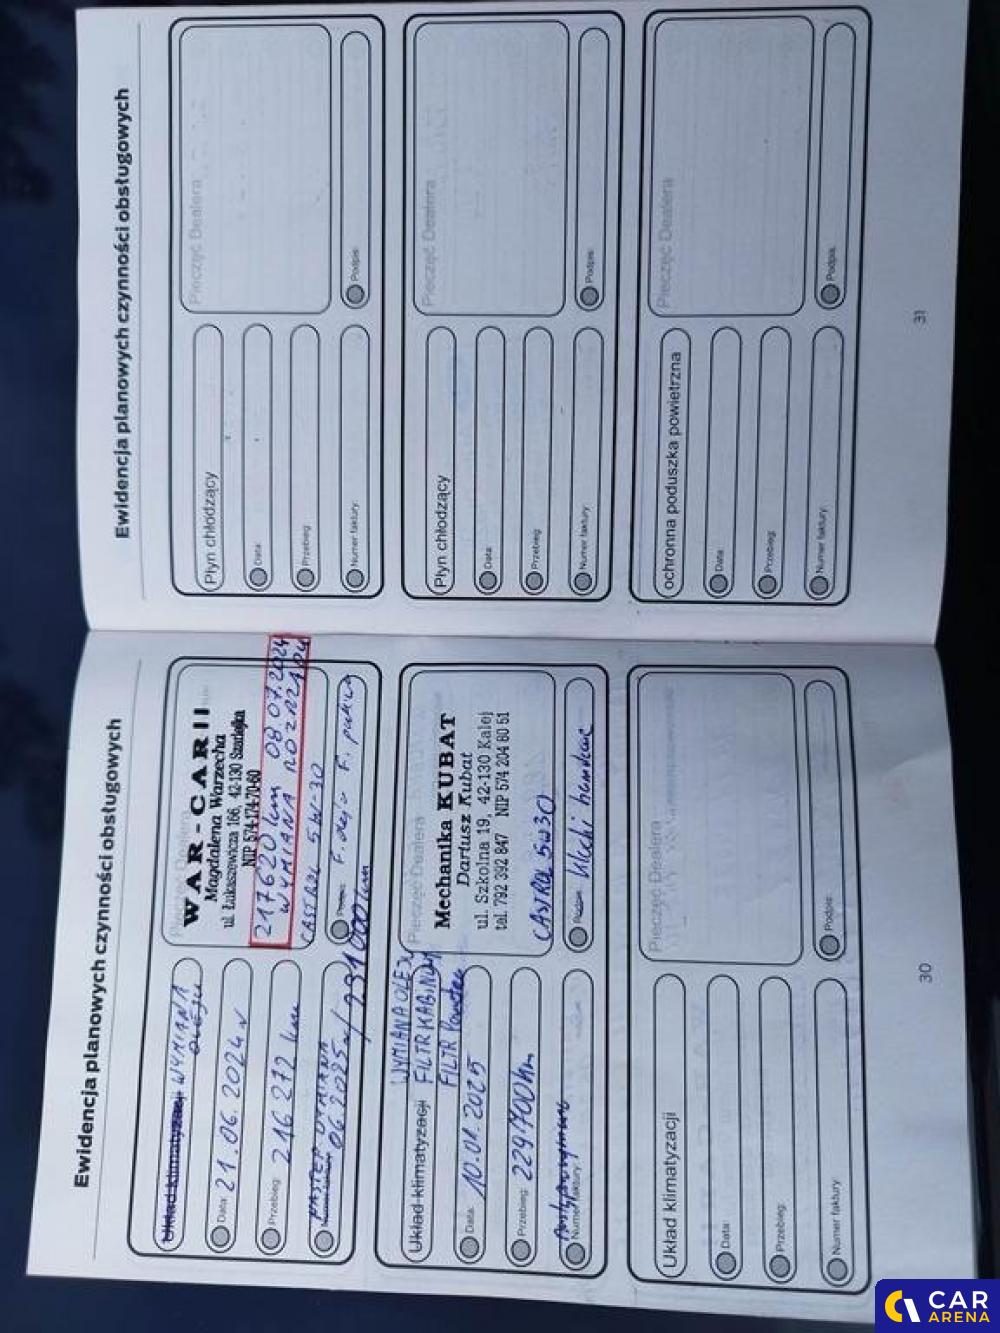 Ewidencja planowych czynności obsługowych
Układ klimatyzacji WYMIANA
OLEJU
Data: 21.06.2024
Przebieg: 216 272 km
NASTĘP WYMIANA
06.2025 / 231000 km
Numer faktury:
Pieczęć Dealera
WAR-CAR II
Magdalena Warzecha
ul. Łukaszewicza 166, 42-130 Szarlejka
NIP 574-174-70-60
217620 km 08.07.2024
WYMIANA ROZRZĄDU
CASTROL 5W-30
Podpis: F. oleju F. paliwa
WYMIANA OLEJU
Układ klimatyzacji FILTR KABINOWY
FILTR
Data: 10.01.2025
Przebieg: 229700 km
Numer faktury:
Pieczęć Dealera
Mechanika KUBAT
Dariusz Kubat
ul. Szkolna 19, 42-130 Kalej
tel. 792 392 847 NIP 574 204 80 51
CASTROL 5W30
Podpis: Klocki hamulcowe
Układ klimatyzacji
Data:
Przebieg:
Numer faktury:
Pieczęć Dealera
Podpis:
30
Ewidencja planowych czynności obsługowych
Płyn chłodzący
Data:
Przebieg:
Numer faktury:
Pieczęć Dealera
Podpis:
Płyn chłodzący
Data:
Przebieg:
Numer faktury:
Pieczęć Dealera
Podpis:
ochronna poduszka powietrzna
Data:
Przebieg:
Numer faktury:
Pieczęć Dealera
Podpis:
31
CAR
ARENA